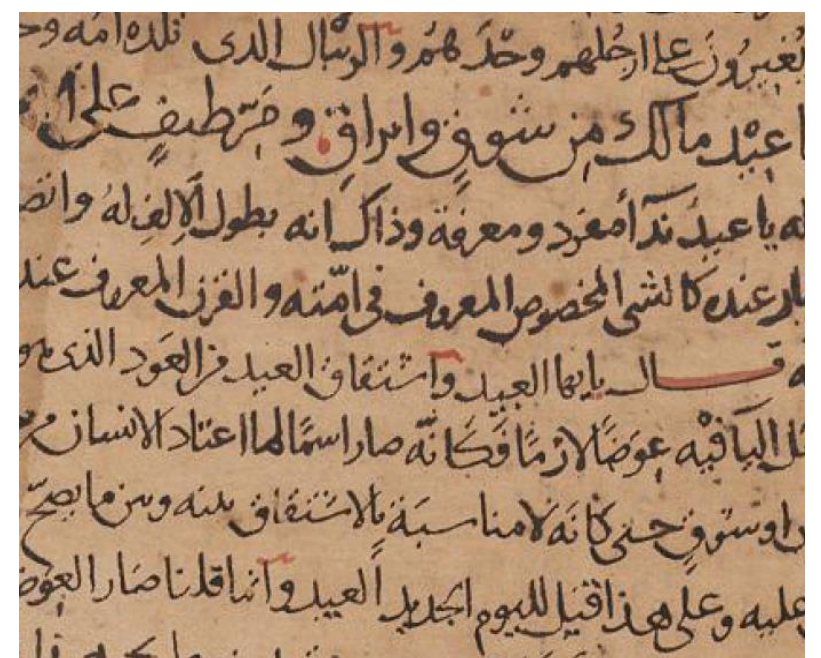 يُغِيرُونَ على ارجُلهم وحْدَهُم والرئبال الذى تلده امّه وحـ
يا عِيْد مالك مِن شوقٍ وايراقٍ ومَرّ طيفٍ على الـ
له يا عيدُ ندآ أ مفرد ومعرفة وذاك انه بطول الإلفِ لهُ واتصـ
ـار عنده كالشى المخصوص المعروف فى امّته والقرن المعروف عند
ه قال يايها العيد واشتقاق العيد من العَود الذى
اليآ فيْه عِوَضًا لازمًا فكَانّه صار اسمًا لما اعتاد الانسان من
او شوقٍ حتى كَانّه لا مناسبَة بالاشتقاق بينه وبين ما يصحّ
عليه وعلى هذا قيل لليوم الجديد العيد وانما قلنا صَار العِوض